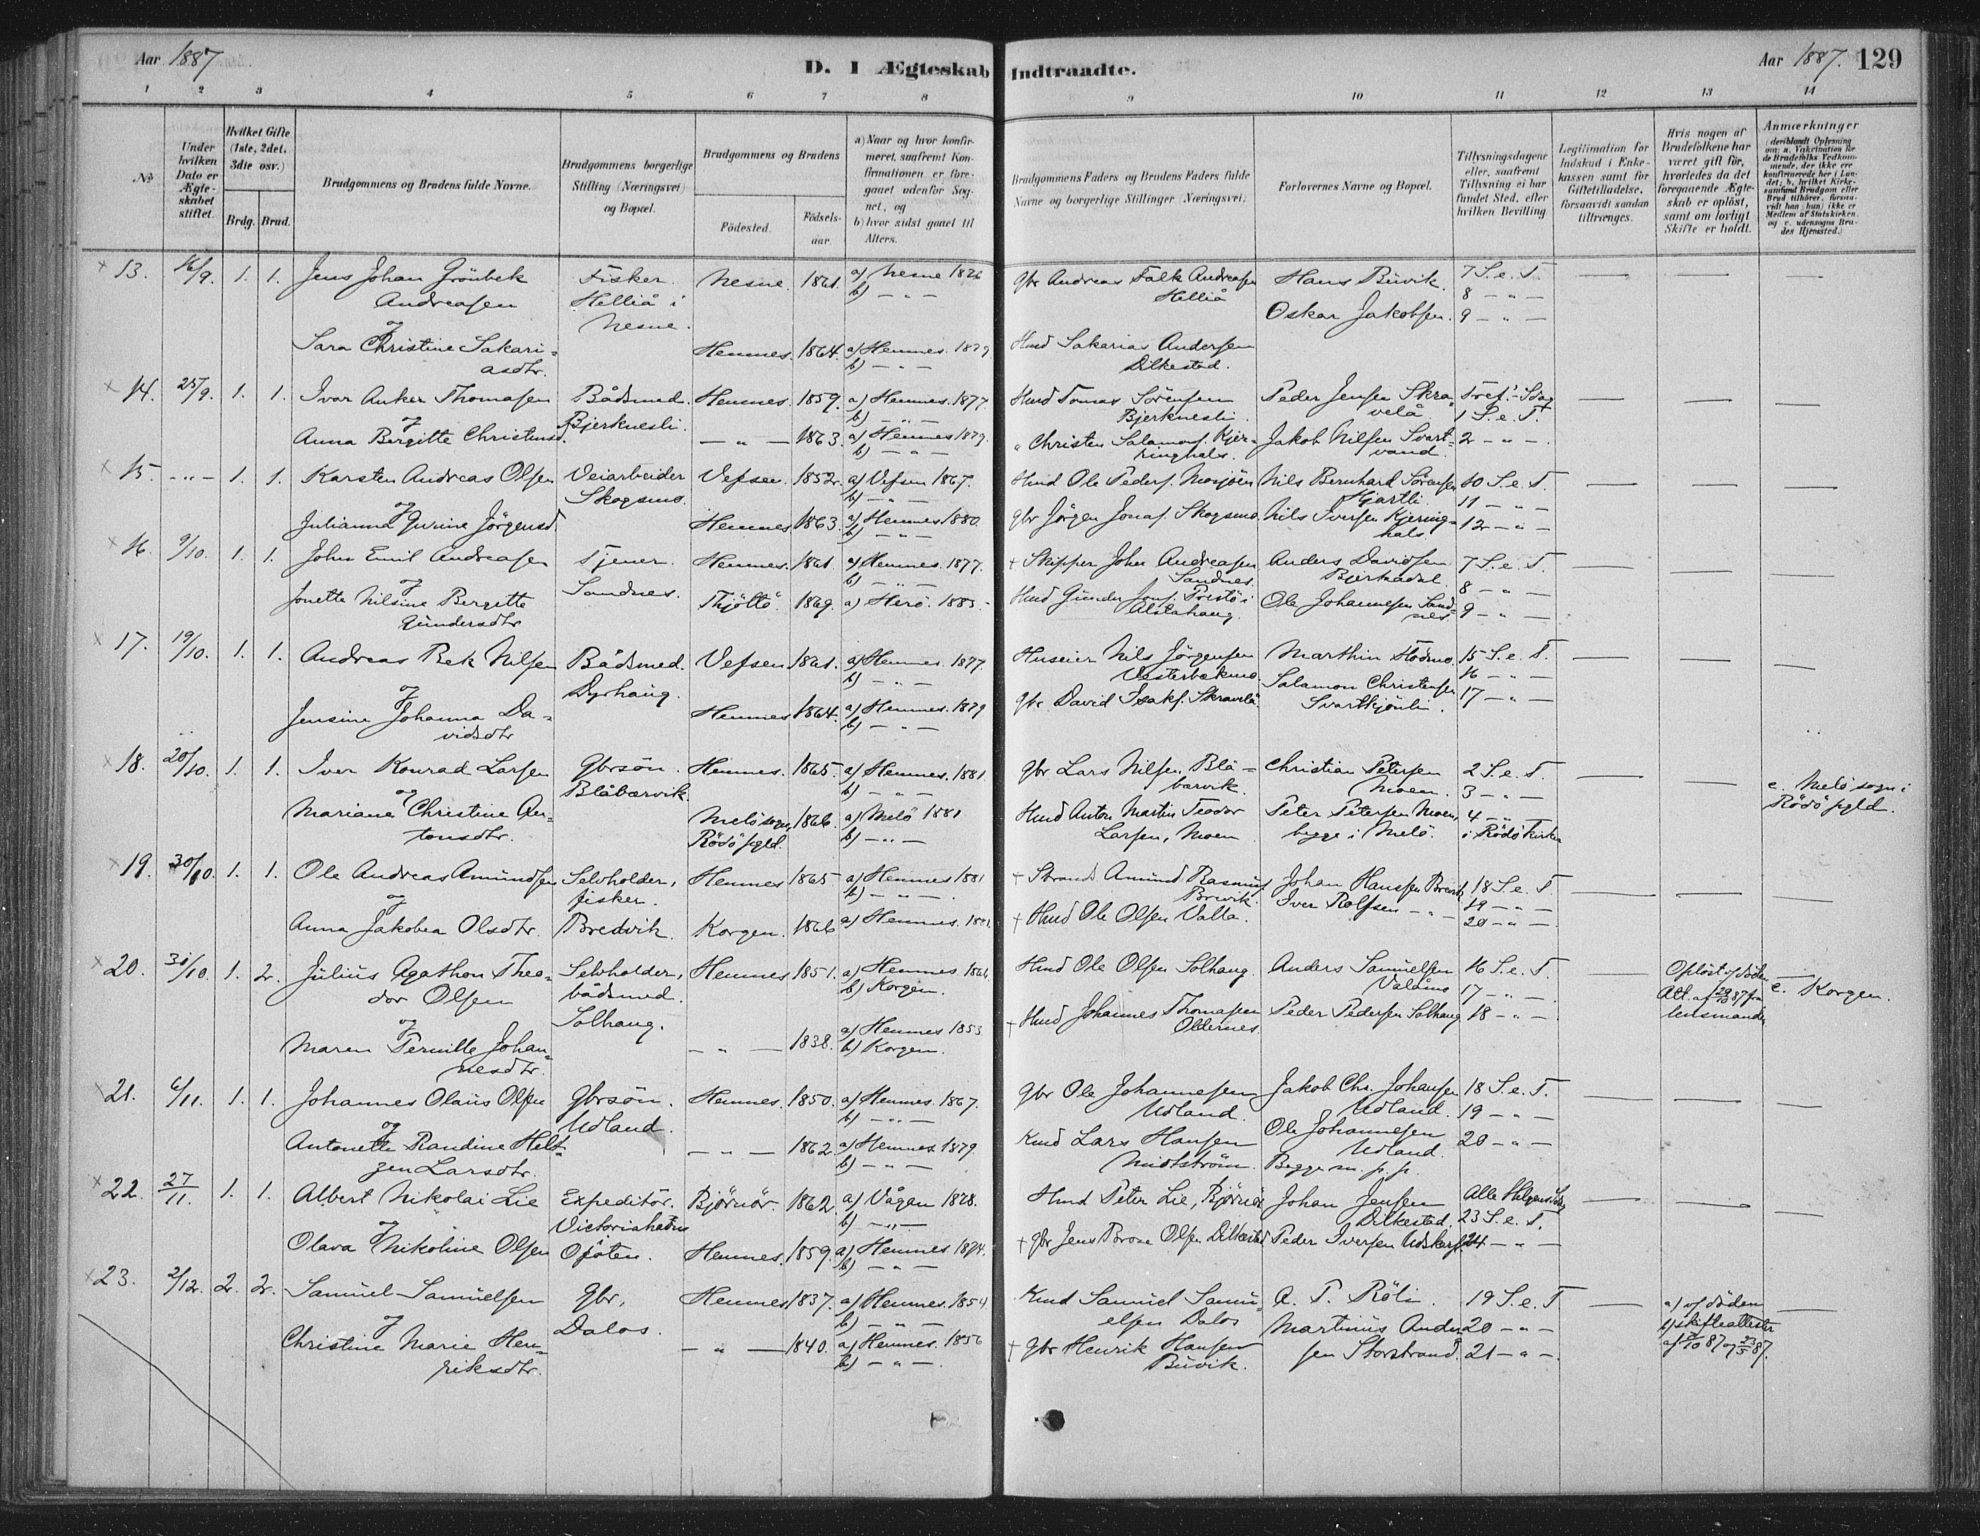 Aar 1887.
D. I Ægteskab Indtraadte.
Aar 1887. 129
1 2 3 4 5 6 7 8 9 10 11 12 13 14
No
Under hvilken Dato er Ægteskabet stiftet.
Hvilket Gifte (1ste, 2det, 3die osv.)
Brdg. Brud.
Brudgommens og Brudens fulde Navne.
Brudgommens borgerlige Stilling (Næringsvei) og Bopæl.
Brudgommens og Brudens
Födested.
Födsels-aar.
a) Naar og hvor konfirmeret, saafremt Konfirmationen er foregaaet udenfor Sognet, og
b) hvor sidst gaaet til Alters.
Brudgommens Faders og Brudens Faders fulde Navne og borgerlige Stillinger (Næringsvei).
Forlovernes Navne og Bopæl.
Tillysningsdagene eller, saafremt Tillysning ei har fundet Sted, efter hvilken Bevilling
Legitimation for Indskud i Enkekassen samt for Giftetilladelse, forsaavidt saadan tiltrænges.
Hvis nogen af Brudefolkene har været gift før, hvorledes da det foregaaende Ægteskab er oplöst, samt om lovligt Skifte er holdt.
Anmærkninger
13. 16/9. 1. 1. Jens Johan Grönbek Andreasen
og
Sara Christine Sakariasdtr.
Fisker. Helliå i Nesne.
Nesne. 1861. a) Nesne 1876 b) — " —
Hemnes. 1864. a) Hemnes. 1879 b) — " —
Gbr Andreas Falk Andreasen Helliå
Hmd Sakarias Andersen Dilkestad.
Hans Buvik.
Oskar Jakobsen.
7 S. e. T.
8 — " —
9 — " —
14. 25/9. 1. 1. Ivar Anker Thomasen
og
Anna Birgitte Christensd.
Bådsmed. Bjerknesli.
Hemnes. 1859. a) Hemnes. 1877. b) — " —
— " — 1863. a) Hemnes 1879. b) — " —
Hmd Tomas Sörensen Bjerknesli.
" Christen Salamons. Kjerringhals.
Peder Jensen Skravelå
Jakob Nilsen Svartvand.
Tref.-Sdag
1 S. e. T.
2 — " —
15. — " — 1. 1. Karsten Andreas Olsen
og
Julianna Gurine Jörgensd
Veiarbeider Skogsmo.
Vefsen. 1852. a) Vefsen 1867. b) — " —
Hemnes 1863. a) Hemnes 1880. b) — " —
Hmd Ole Peders. Mosjöen
Gbr Jörgen Jonas. Skogsmo.
Nils Bernhard Sörensen Hjartli.
Nils Iversen Kjeringhals.
10 S. e. T.
11 — " —
12 — " —
16. 9/10. 1. 1. John Emil Andreasen
og
Jonetta Nilsine Bergitte Gundersdtr
Tjener. Sandnes.
Hemnes. 1861. a) Hemnes. 1877. b) — " —
Thjöttö. 1869. a) Herö. 1883.
+ Skipper John Andreasen Sandnes.
Hmd Gunder Jons. Prestö i Alstahaug.
Anders Davidsen Bjerkadal.
Ole Johannesen Sandnes
7 S. e. T.
8 — " —
9 — " —
17. 19/10. 1. 1. Andreas Bek Nilsen
og
Jensine Johanna Davidsdtr
Bådsmed. Dyrhaug.
Vefsen 1861. a) Hemnes. 1877. b) — " —
Hemnes 1864. a) Hemnes. 1879 b) — " —
Huseier Nils Jörgensen Vesterbekmo.
Gbr David Isaks. Skravelå.
Marthin Stödmo.
Salamon Christensen Svarttjönli.
15 S. e. T.
16 — " —
17 — " —
18. 20/10. 1. 1. Iver Konrad Larsen
og
Mariane Christine Antonsdtr.
Gbrsön. Blåbærvik.
Hemnes. 1865. a) Hemnes. 1881. b) — " —
Melö sogn, Rödö pgld. 1866. a) Melö 1881 b) — " —
Gbr Lars Nilsen, Blåbærvik.
Hmd Anton Martin Teodor Larsen, Moen
Christian Petersen Moen.
Peter Petersen Moen, begge i Melö.
2 S. e. T.
3 — " —
4 — " —
i Rödö Kirke
c. Melö sogn i Rödö pgld.
19. 30/10. 1. 1. Ole Andreas Amundsen
og
Anna Jakobea Olsdtr.
Selvholder, fisker. Bredvik.
Hemnes 1865 a) Hemnes 1881 b) — " —
Korgen. 1866 a) Hemnes. 1881.
+ Strands. Amund Rasmus. Brevik.
+ Hmd Ole Olsen Valla.
Johan Hansen Brevik
Iver Rolfsen — " —
18 S. e. T.
19 — " —
20 — " —
20. 30/10. 1. 2. Julius Agathon Theodor Olsen
og
Maren Pernille Johannesdtr.
Selvholder, bådsmed. Solhaug.
Hemnes 1851. a) Hemnes. 1866. b) Korgen.
— " — 1838. a) Hemnes 1853 b) Korgen.
Hmd Ole Olsen Solhaug.
+ Hmd Johannes Thomasen Oldernes.
Anders Samuelsen Valåmo
Peder Pedersen Solhaug
16 S. e. T.
17 — " —
18 — " —
Oplöst v/ döden
Att. af 29/10 87 fra lensmanden
c. Korgen.
21. 6/11. 1. 1. Johannes Olaus Olsen
og
Antonette Randine Heltzen Larsdtr.
Gbrsön. Udland.
Hemnes. 1850. a) Hemnes. 1867. b) — " —
— " — 1862 a) Hemnes. 1879. b) — " —
Gbr Ole Johannesen Udland.
Kmd Lars Hansen Midtström.
Jakob Chr. Johansen Udland.
Ole Johannesen Udland.
Begge m. p. p.
18 S. e. T.
19 — " —
20 — " —
22. 27/11. 1. 1. Albert Nikolai Lie
og
Olava Nikoline Olsen
Expeditör. Victoriahavn Ofoten.
Bjørnör. 1862. a) Vågan 1878. b) — " —
Hemnes. 1859. a) Hemnes. 1874. b) — " —
Hmd Peter Lie, Bjørnör
+ Gbr Jens Brose Olsen Dilkestad
Johan Jensen Dilkestad.
Peder Iversen Udskarpen
Alle Helgens Sdag
23 S. e. T.
24 — " —
23. 2/12. 2. 2. Samuel Samuelsen
og
Christine Marie Henriksdtr.
Gbr, Dalos.
Hemnes 1837. a) Hemnes. 1854 b) — " —
— " — 1840. a) Hemnes. 1856 b) — " —
Kmd Samuel Samuelsen Dalos
+ Gbr Henrik Hansen Buvik.
A. T. Röli.
Martinus Andersen Storstrand.
19 S. e. T
20 — " —
21 — " —
a) v/ döden
b) skifteattester